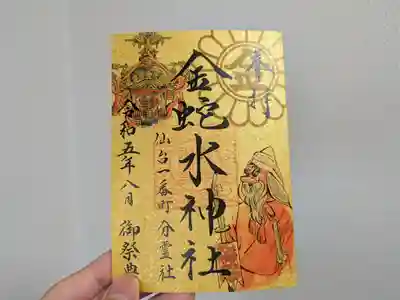 奉拝
金蛇水神社
仙台一番町分霊社
令和五年八月 御祭典